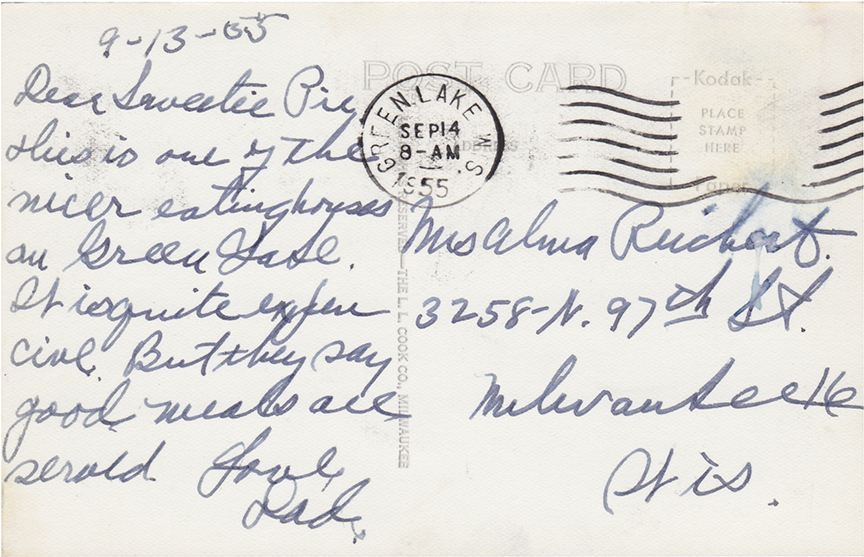 9-13-55
Dear Sweetie Pie
this is one of the
nicer eatinghouses
on Green Lake.
It is quite expen
cive. But they say
good meals are
serveld. Love,
Dad.
POST CARD
GREEN LAKE
SEP 14
8-AM
1955
WIS.
Kodak
PLACE
STAMP
HERE
Paper
THE L. L. COOK CO., MILWAUKEE
Mrs Alma Reichert.
3258-N. 97th St.
Milwaukee 16
Wis.